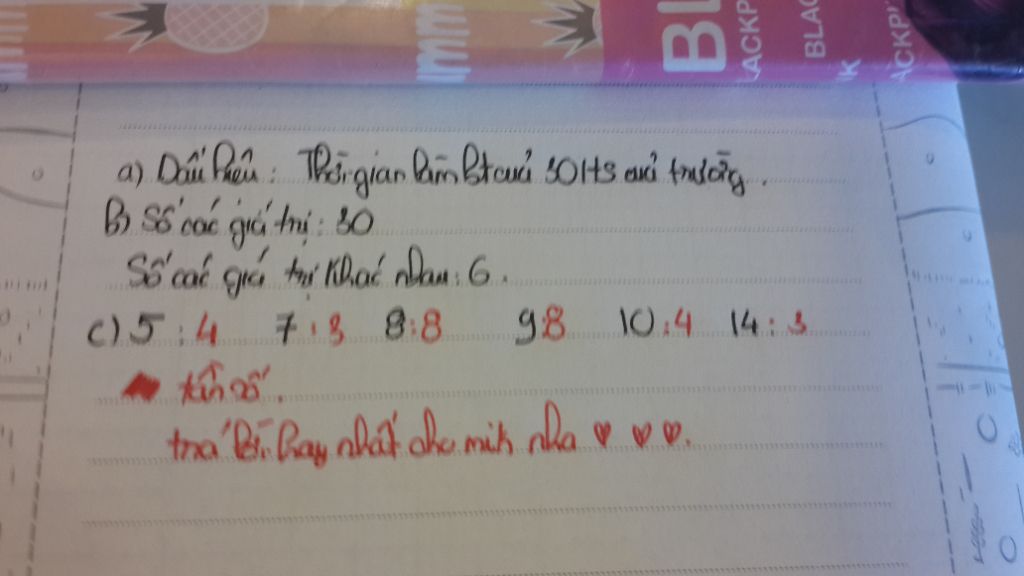 mm
BL
LACKP
BLAC
K
ACKPI
a) Dấu hiệu: Thời gian làm Bt của 30 HS của trường.
B) Số các giá trị: 30
Số các giá trị khác nhau: 6.
c) 5:4 7:3 8:8 9:8 10:4 14:3
tần số.
trả lời hay nhất cho mình nha ♥ ♥ ♥.